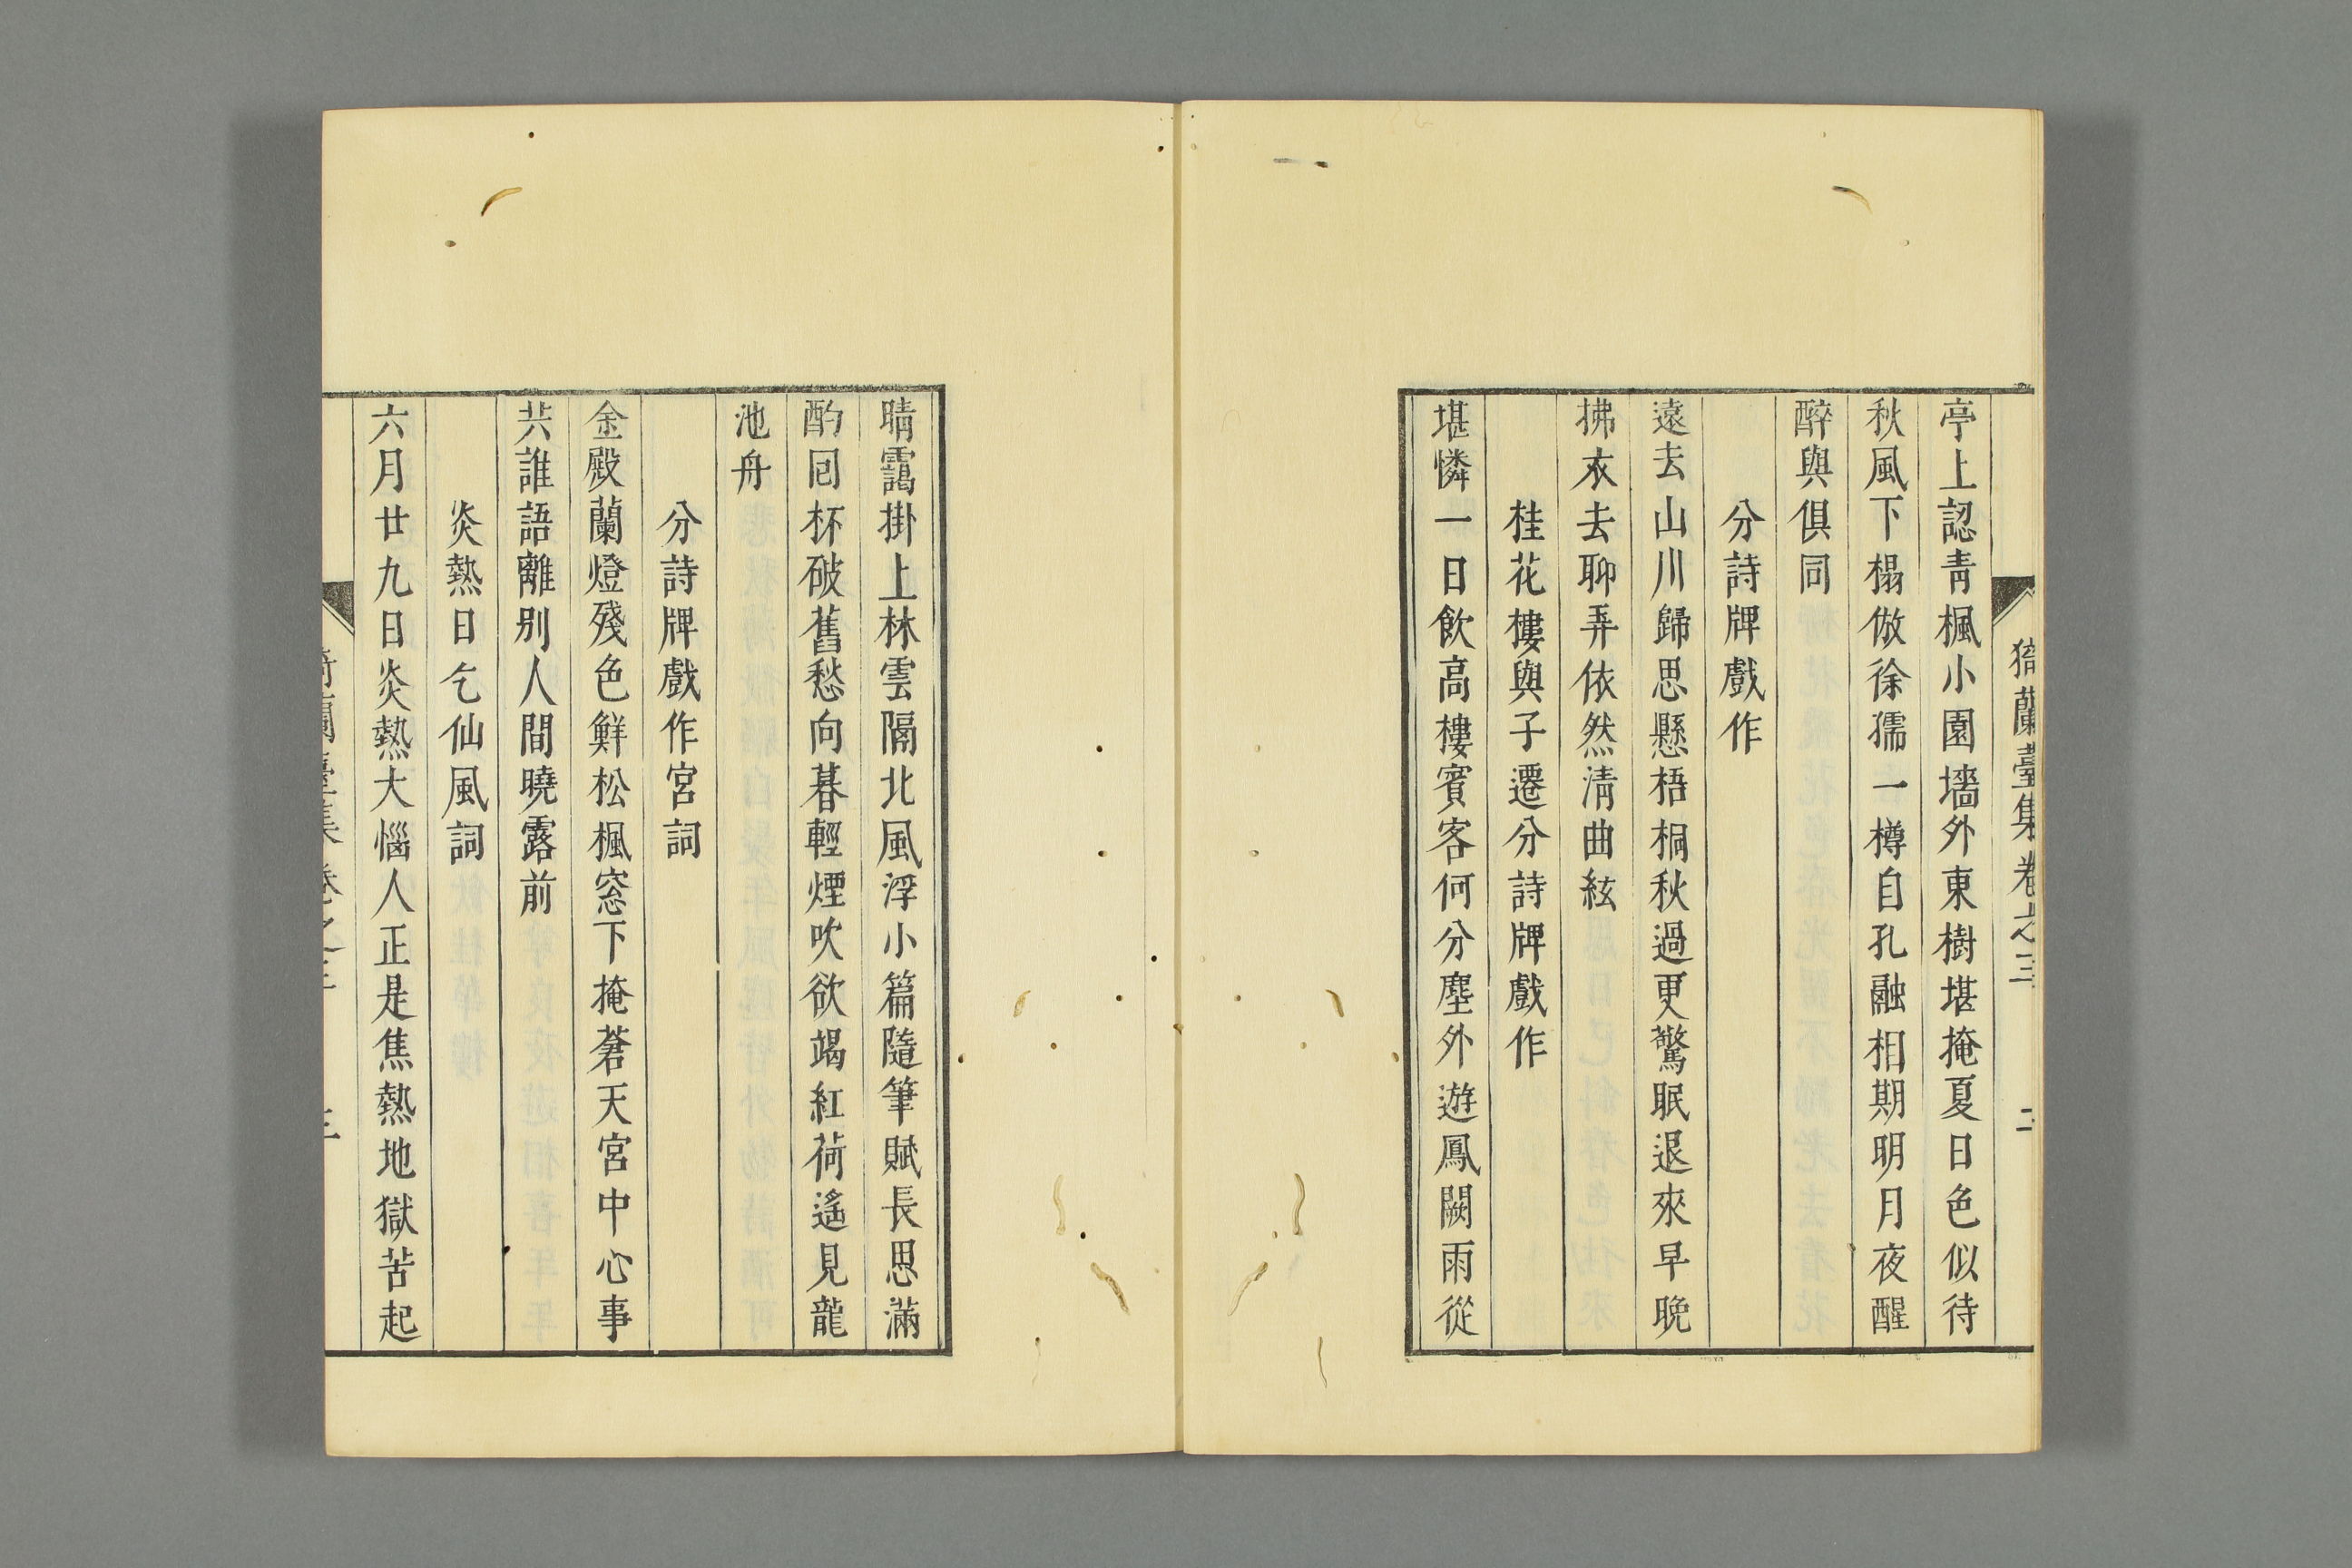 猗蘭臺集卷之三 二
亭上認靑楓小園墻外東樹堪掩夏日色似待
秋風下榻倣徐孺一樽自孔融相期明月夜醒
醉與俱同
分詩牌戲作
遠去山川歸思懸梧桐秋過更驚眠退來早晚
拂衣去聊弄依然淸曲絃
桂花樓與子遷分詩牌戲作
堪憐一日飮高樓賓客何分塵外遊鳳闕雨從
晴靄掛上林雲隔北風浮小篇隨筆賦長思滿
酌回杯破舊愁向暮輕煙吹欲竭紅荷遙見龍
池舟
分詩牌戲作宮詞
金殿蘭燈殘色鮮松楓窓下掩蒼天宮中心事
共誰語離別人間曉露前
炎熱日乞仙風詞
六月廿九日炎熱大惱人正是焦熱地獄苦起
猗蘭臺集卷之三 三